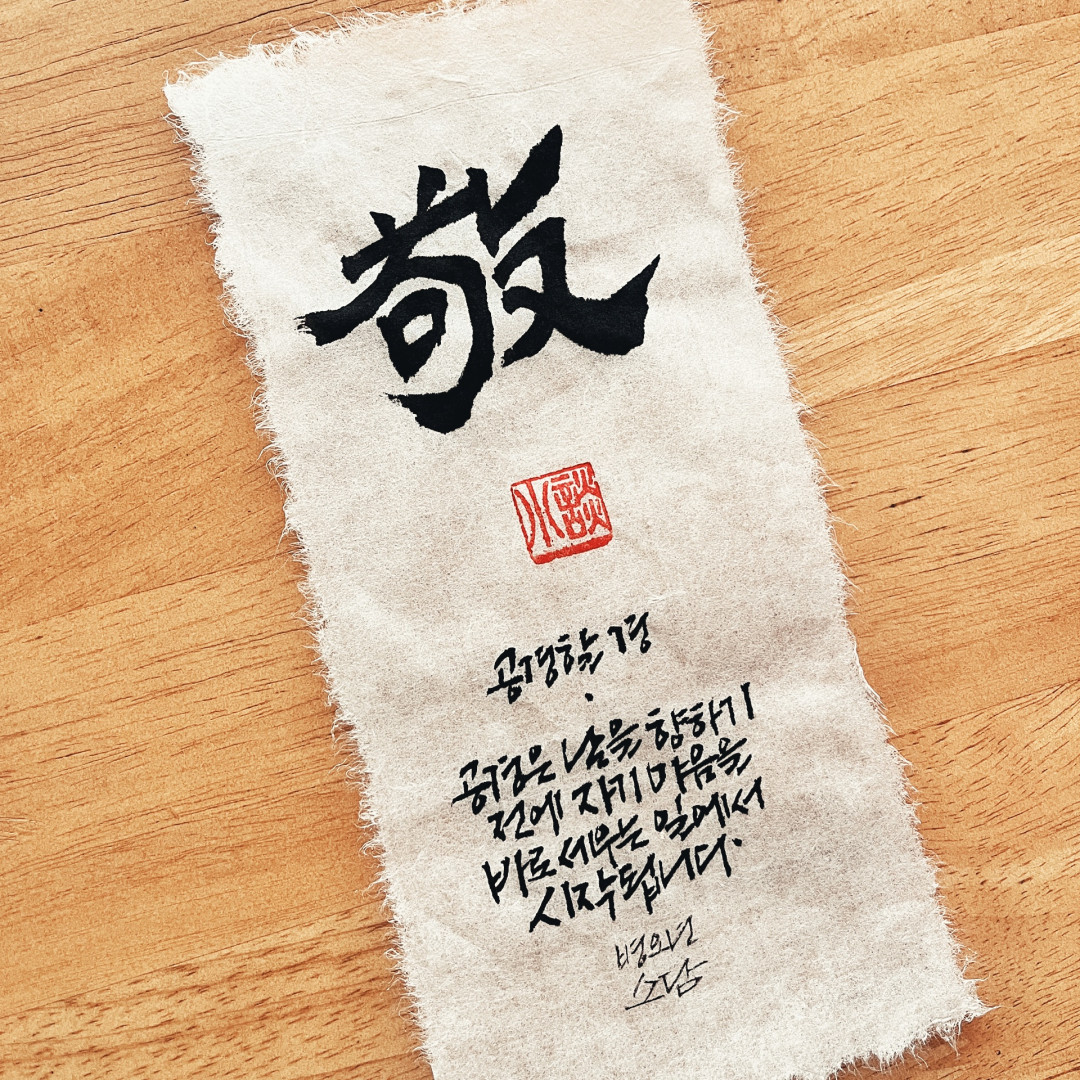 敬
小談
공경할 경
·
공경은 남을 향하기
전에 자기 마음을
바로 세우는 일에서
시작됩니다.
병오년
소담